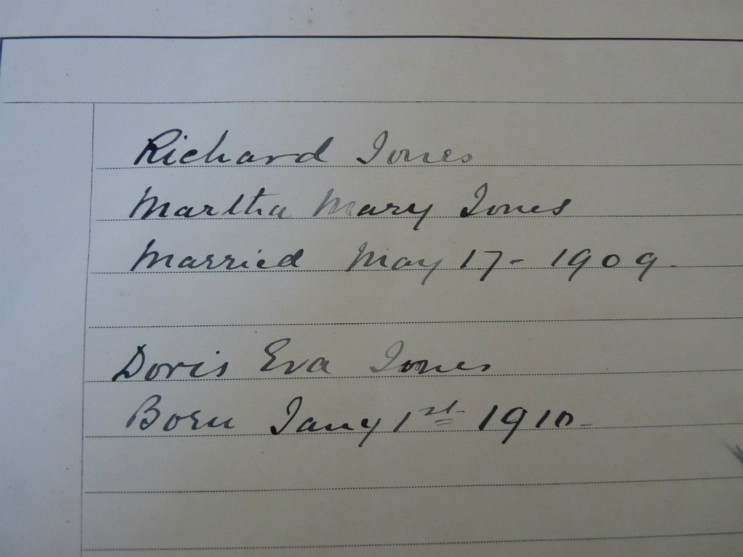 Richard Jones
Martha Mary Jones
Married May 17 - 1909.
Doris Eva Jones
Born Jany 1st 1910 -